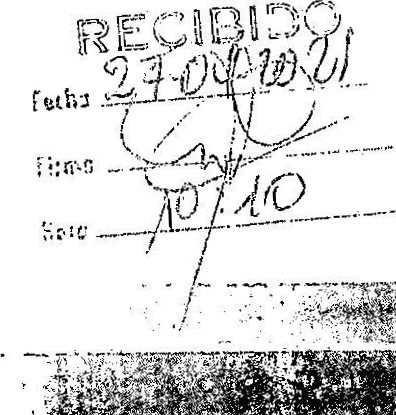 RECIBIDO
Fecha 27-04-2021
Firma
Hora 10:10